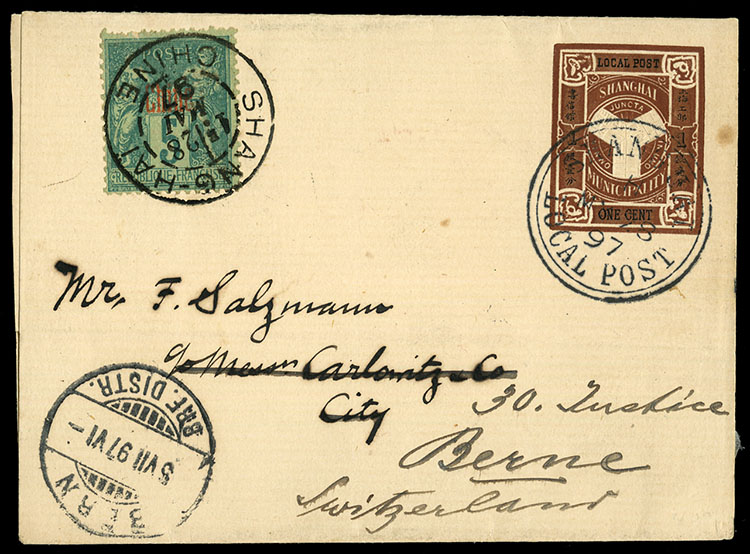 SHANG-HAI
CHINE
1E
28
MAI
97
CHINE
5
RÉPUBLIQUE FRANÇAISE
LOCAL POST
SHANGHAI
JUNCTA
MUNICIPALITY
ONE CENT
LOCAL POST
97
Mr. F. Salzmann
c/o Messrs Carlowitz & Co
City
30. Justice
Berne
Switzerland
BERN
8 VII 97 VI-
BRF. DISTR.